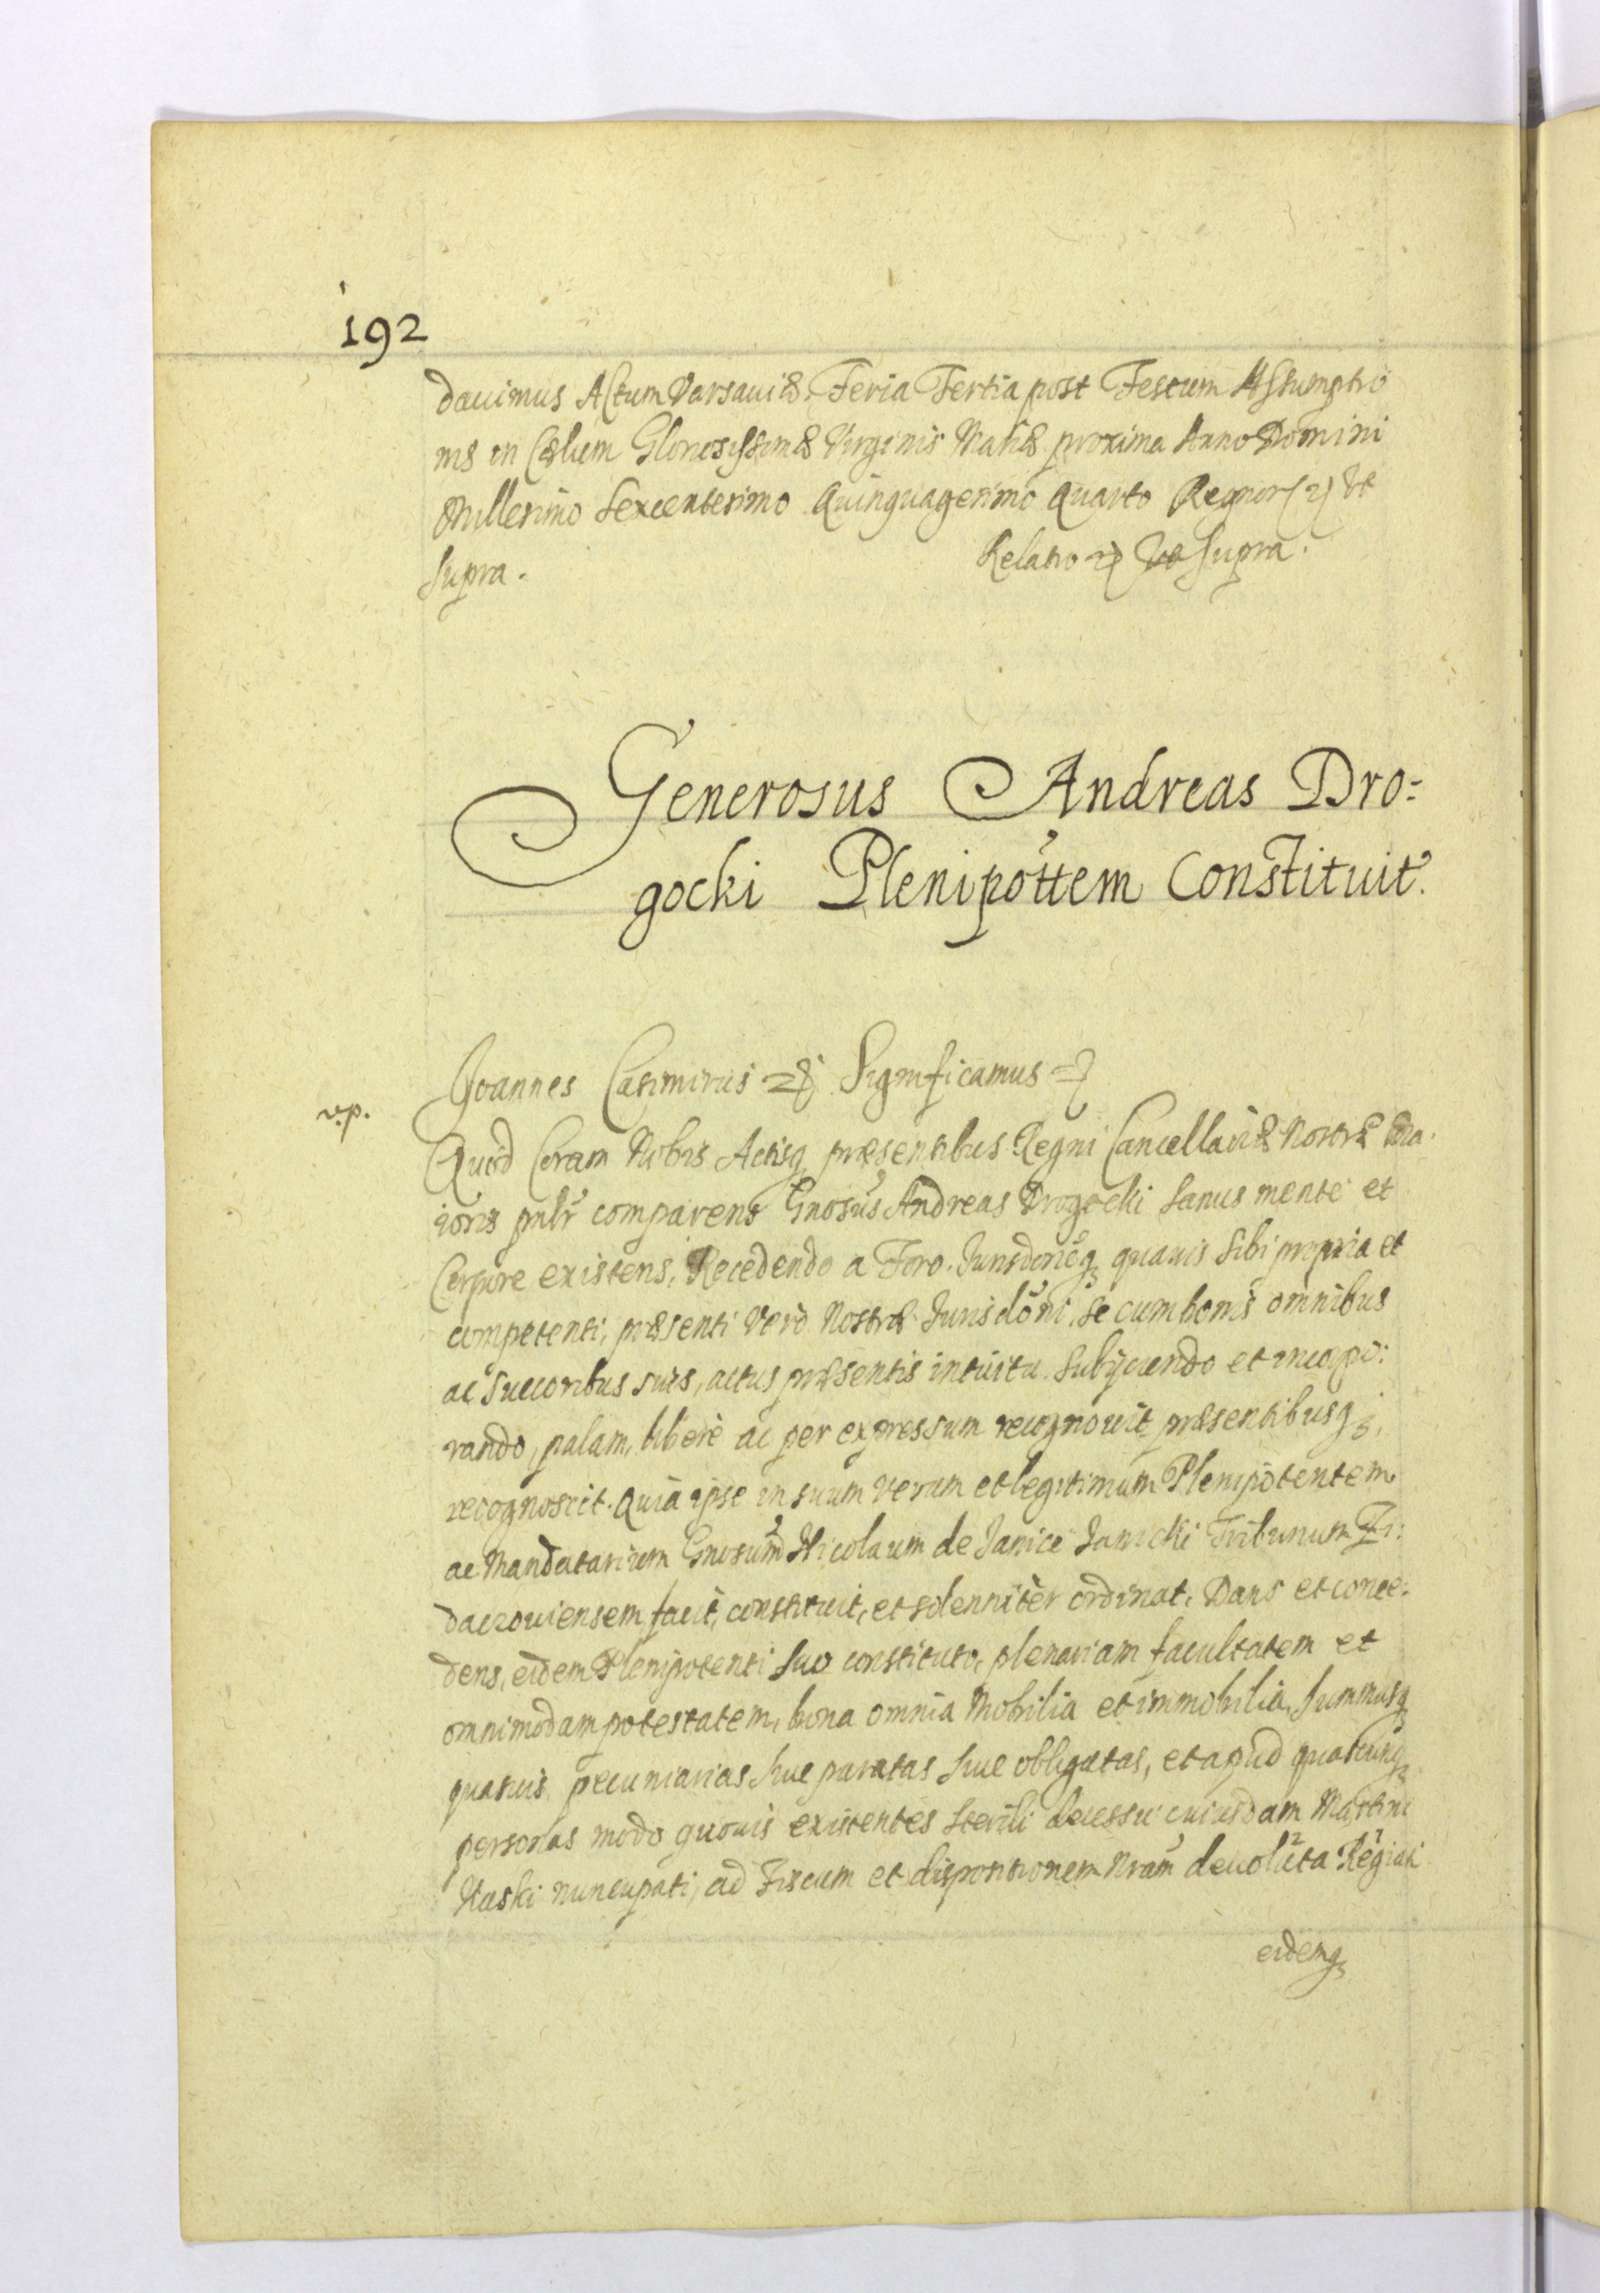 192
dauimus Actum Varsauiæ. Feria Tertia post Festum Assumptio
nis in Cœlum Gloriosissimæ Virginis Mariæ proxima Anno Domini
Millesimo Sexcentesimo Quinquagesimo Quarto Regnor(um) Vt
supra. Relatio Vt supra.
Generosus Andreas Dro=
gocki Plenipottem Constituit.
Joannes Casimirus Significamus
v.p.
Quod Coram Nobis Actisq præsentibus Regni Cancellariæ Nostræ Ma.
ioris pnlr comparens Gnosus Andreas Drogocki sanus mente et
Corpore existens, Recedendo a Foro Jurisdoneq quauis sibi propria et
competenti, præsenti Vero Nostræ Jurisdoni, se cum bonis omnibus
ac succoribus suis, actus præsentis intuitu subijciendo et incorpo:
rando, palam, libere ac per expressum recognouit, præsentibusq,
recognoscit. Quia ipse in suum verum et legitimum Plenipotentem
ac Mandatarium Gnosum Nicolaum de Janice Janicki Tribunum Zi:
daczouiensem facit, constituit, et solenniter ordinat. Dans et conce.
dens, eidem Plenipotenti suo constituto, plenariam facultatem et
omnimodam potestatem, bona omnia Mobilia et immobilia, summasq
quasuis pecuniarias siue paratas siue obligatas, et apud quascunq
personas modo quouis existentes sterili decessu cuiusdam Martini
nuncupati, ad Fiscum et dispositionem nram deuoluta
eidemq